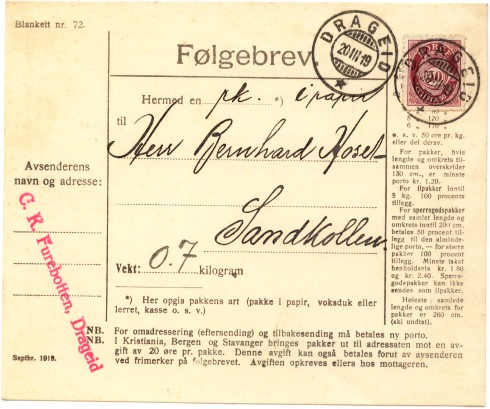 Blankett nr. 72.
DRAGEID
20 III 19
DRAGEID
50
Følgebrev.
Hermed en pk. *) i papir
til
Herr Bernhard Hosel
Sandkollen
Avsenderens
navn og adresse:
C. R. Furebotten, Drageid
Vekt: 0.7 kilogram
*) Her opgis pakkens art (pakke i papir, voksduk eller
lerret, kasse o. s. v.)
120
o. s. v. 50 øre pr. kg.
eller del derav.
For pakker, hvis
lengde og omkrets til-
sammen overskrider
130 cm., er minste
porto kr. 1.20.
For ilpakker inntil
5 kg. 100 procents
tillegg.
For sperregodspakker
med samlet lengde og
omkrets inntil 200 cm.
betales 50 procent til-
legg til den alminde-
lige porto, — for større
pakker 100 procent
tillegg. Minste takst
henholdsvis kr. 1.80
og kr. 2.40. Sperre-
godspakker kan ikke
sendes som ilpakker.
Høieste samlede
lengde og omkrets for
pakker er 260 cm.
(ski undtat).
NB. For omadressering (eftersending) og tilbakesending må betales ny porto.
NB. I Kristiania, Bergen og Stavanger bringes pakker ut til adressaten mot en av-
gift av 20 øre pr. pakke. Denne avgift kan også betales forut av avsenderen
ved frimerker på følgebrevet. Avgiften opkreves ellers hos mottageren.
Septbr. 1918.